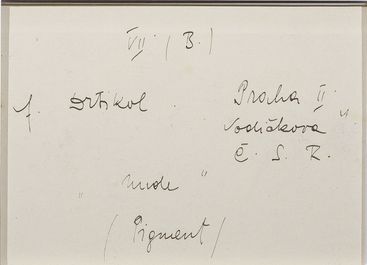 VII. (B.)
f. Drtikol. Praha II.
Vodičkova "
Č. S. R.
„nude"
(Pigment)